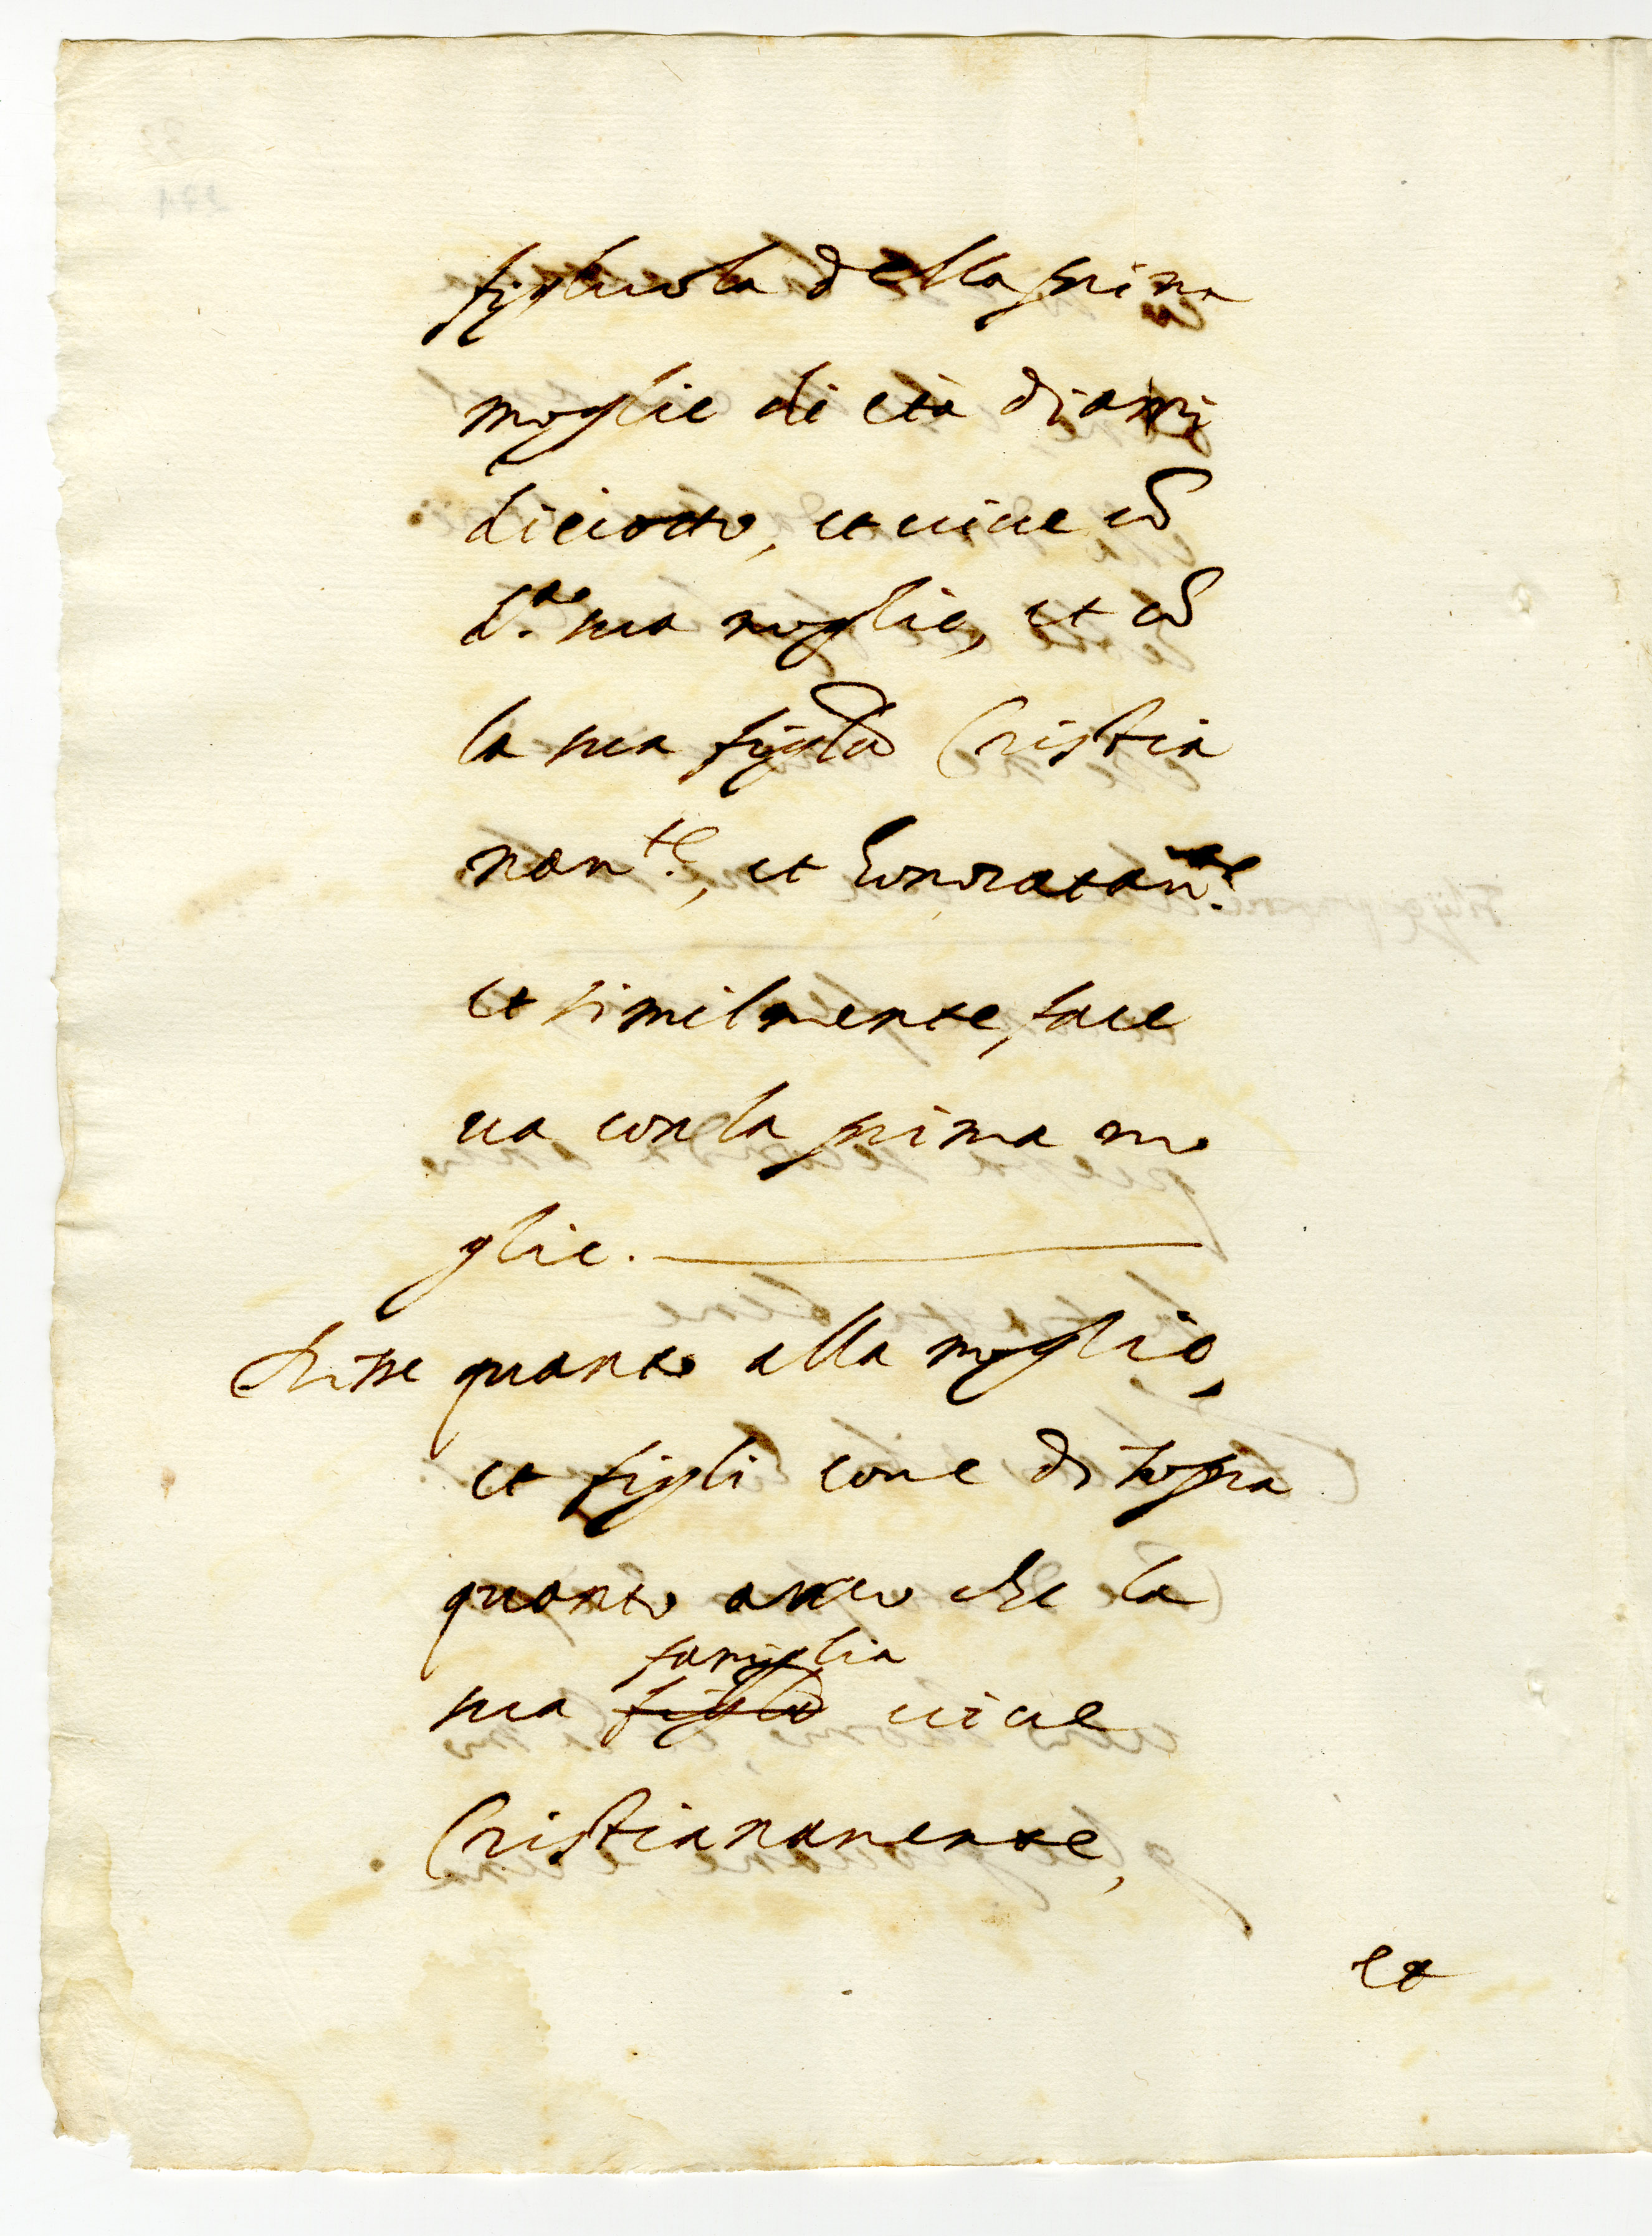 figliuola della prima
moglie di età di anni
diciotto, et uiue cõ
d.ª sua moglie, et cõ
la sua figlia Cristia
nam.te, et honoratam.te
et similmente, face
ua con la prima mo
glie.
Disse quanto alla moglie,
et figli come di sopra
quanto anco che la
famiglia
sua figlia uiue
Cristianamente,
et